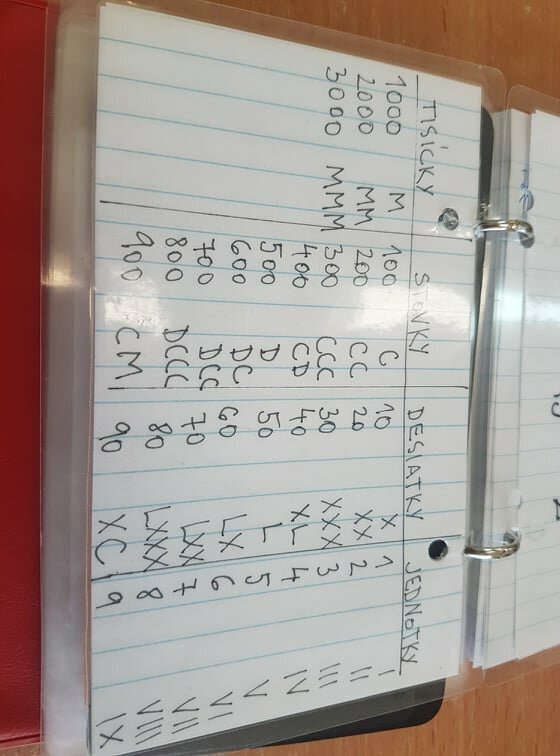 TISÍCKY STOVKY DESIATKY JEDNOTKY
1000 M 100 C 10 X 1 I
2000 MM 200 CC 20 XX 2 II
3000 MMM 300 CCC 30 XXX 3 III
400 CD 40 XL 4 IV
500 D 50 L 5 V
600 DC 60 LX 6 VI
700 DCC 70 LXX 7 VII
800 DCCC 80 LXXX 8 VIII
900 CM 90 XC 9 IX